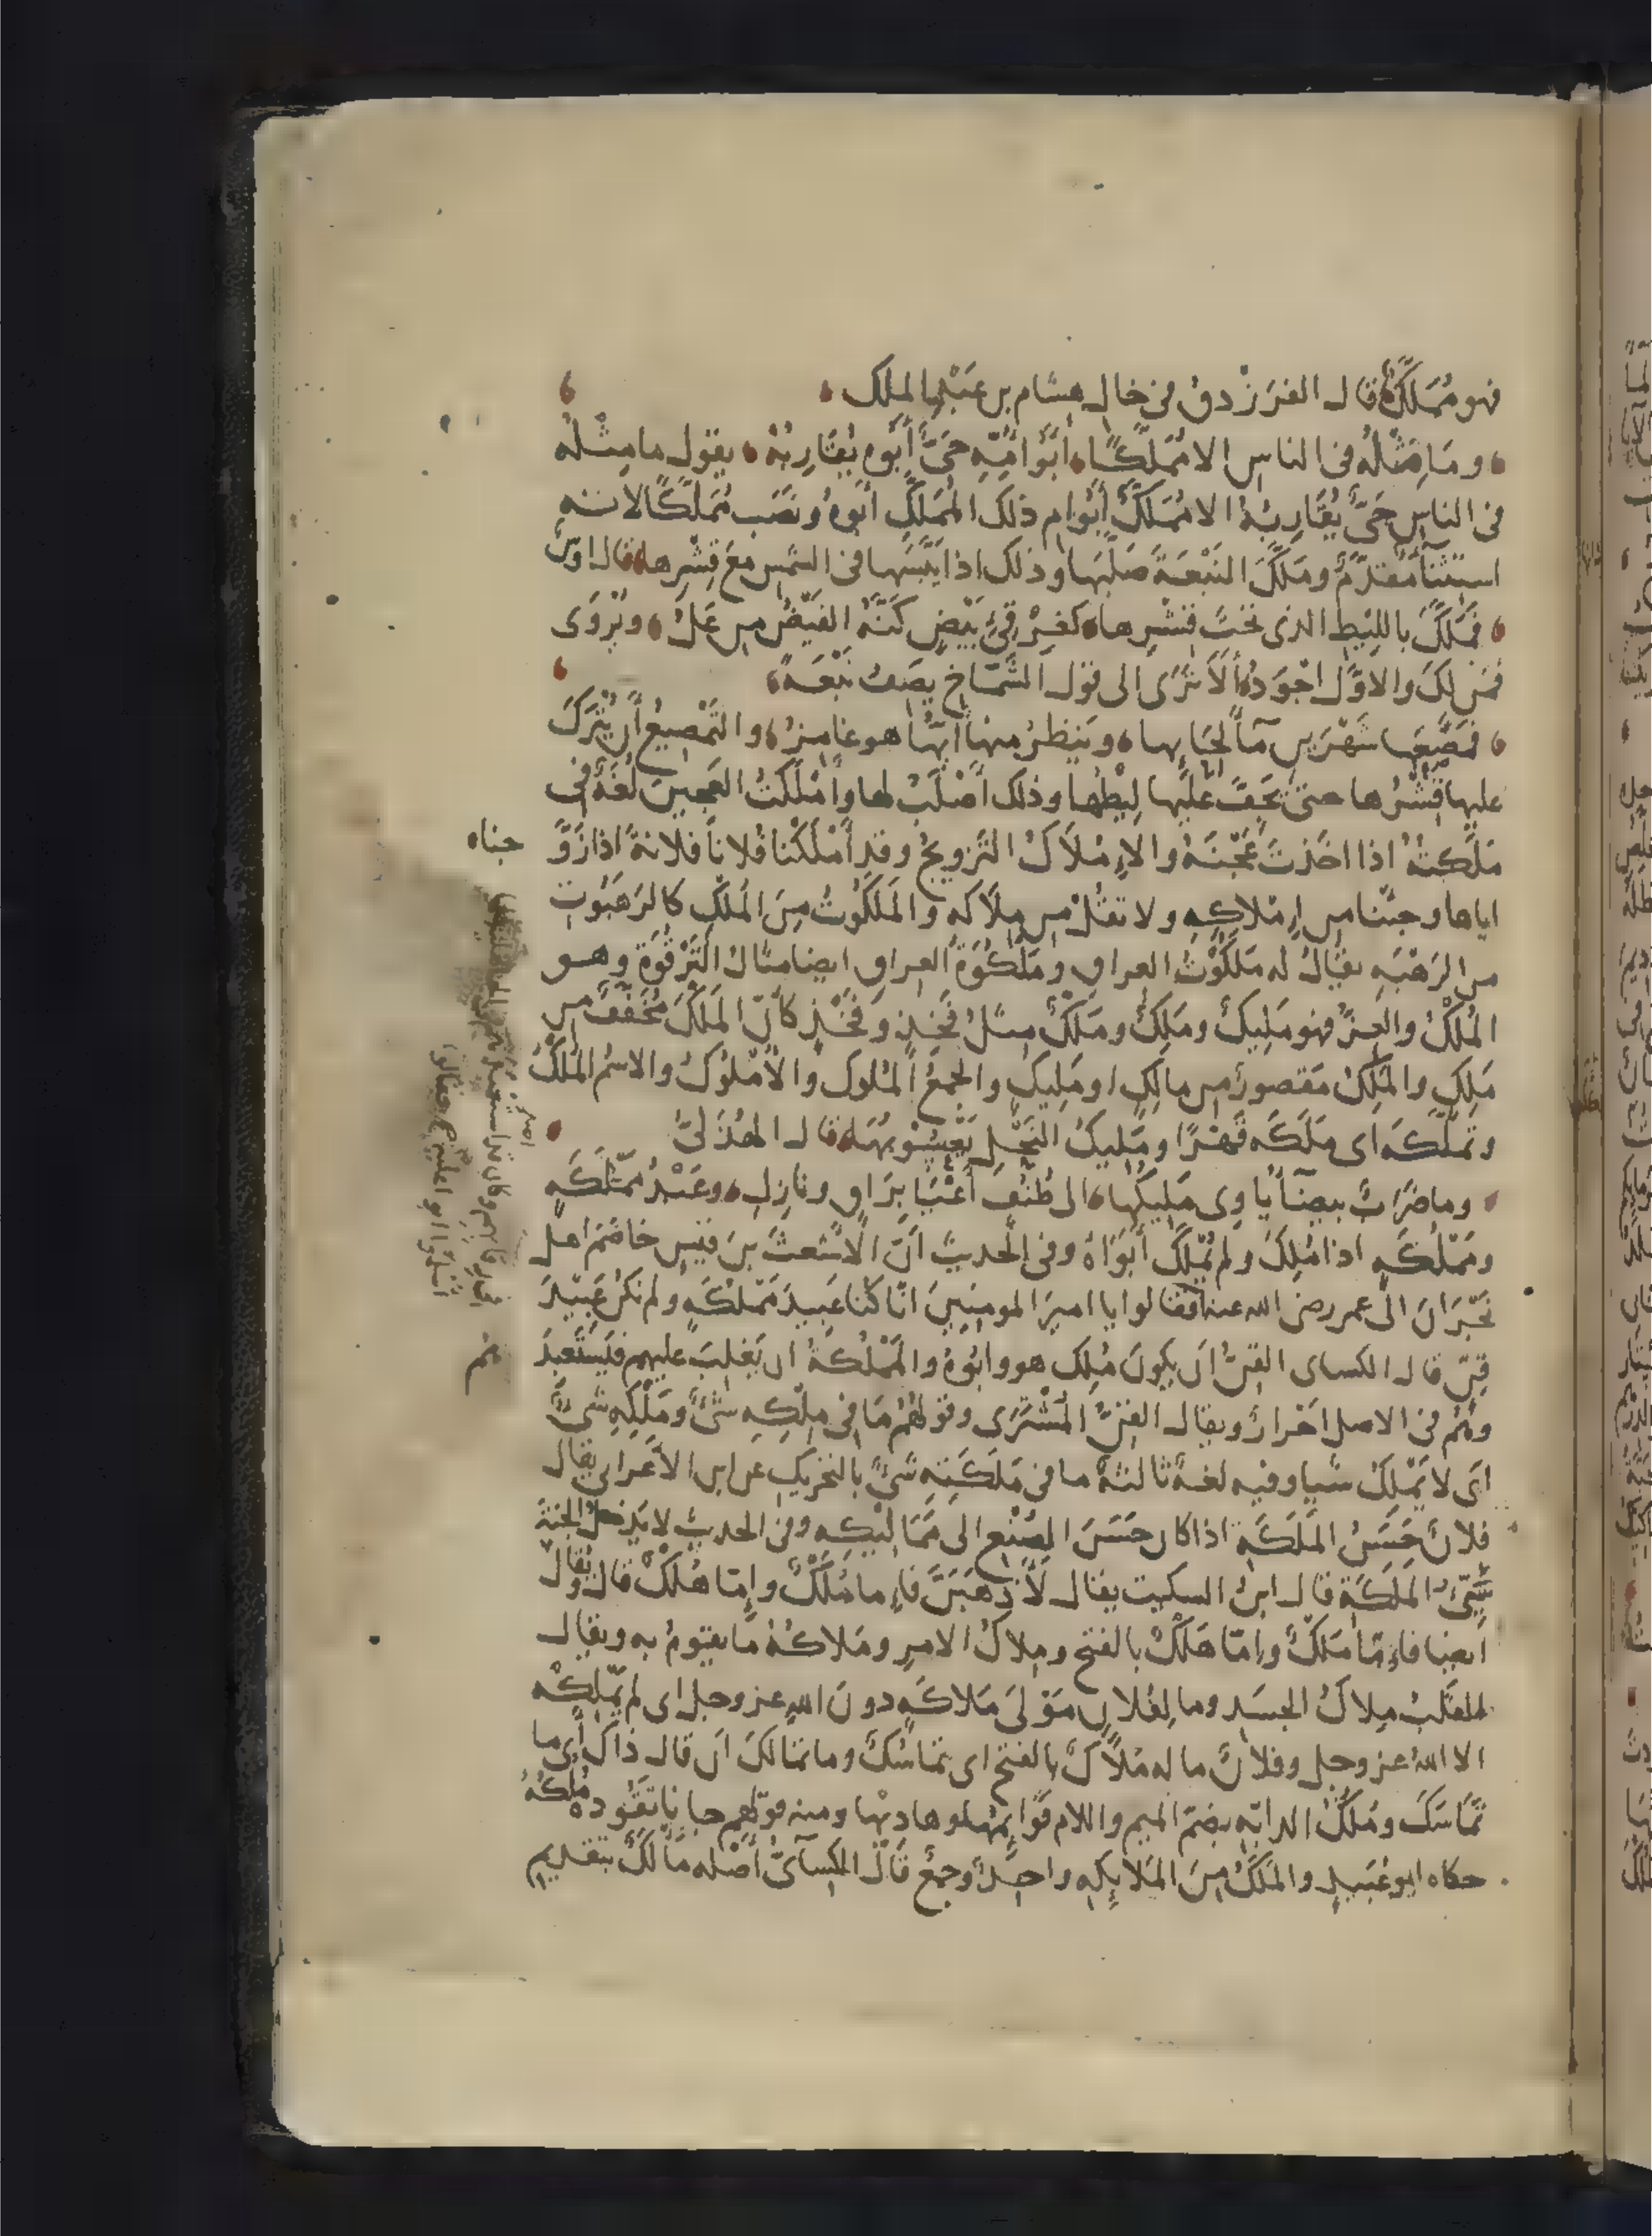 فهو مُمَلَّكٌ قال الفرَزْدقُ فى خال هشام بن عَبْدِ الملك
ومَا مِثْلُهُ فى الناسِ الا مُمَلَّكًا أَبُو أُمِّهِ حَىٌّ أَبُوهُ يُقَارِبُهْ يقول ما مِثْلُهُ
فى الناسِ حَىٌّ يُقَارِبُهُ الا مُمَلَّكٌ أبُو امِ ذلك المُمَلَّكِ أَبُوهُ ونَصَب مُمَلَّكًا لانه
استثنآ مُقدَّمٌ ومَلَّكَ النَبْعَةَ صَلَّبَها وذلك اذا يَبَّسَها فى الشمس مع قِشْرِها قال اوسٌ
فَمَلَّكَ بالليطِ الذى تحْتَ قِشْرِها كغِرْقِئِ بَيْضٍ كَنَّهُ القَيْضُ من عَلُ ويُرْوَى
فمَن لكَ والاوَّل اجْوَدُ ألَا تَرَى الى قول الشَّمّاخ يصَفُ نَبْعَةً
فَمصَّعها شَهْرَينِ مآ لِحَايِها وَينظرُ منها أيَّها هو غامِزُ والتَمْصِيعُ أن يُتْرَكَ
عليها قِشْرُها حتى يَجِفَّ علَيْها لِيْطُها وذلك أصْلَبُ لها وأمْلَكْتُ العَجِينَ لُغَةٌ فى
مَلَّكتُهُ اذا اخَذتَ عَجْنَهُ والإِمْلاَكُ التَزويجُ وقد أمْلَكْنا فُلاناً فلانةً اذا زَوَّ
جناه
اياها وجئنا من إِمْلاكِهِ ولا تقُلْ من مِلاَكه والمَلَكُوتُ مِنَ المُلْكِ كالرَهَبُوتِ
من الرَهْبَهِ يقَالُ له مَلَكُوْتُ العراقِ ومَلْكُوَةُ العِراقِ ايضا مثالُ التَرْقُوَةِ وهو
المُلْكُ والعِزُّ فهو مَلِيكٌ ومَلِكٌ ومَلْكٌ مثلُ فَخِذٍ وفَخْذٍ كأنّ المَلْكَ مُخَفَّفٌ من
مَلِكٍ والمَلِكُ مَقصورٌ من مالِكٍ او مَلِيكٍ والجمعُ المُلوك والأمْلُوكُ والاسْم المُلْكُ
وتملّكَه اى مَلَكَه قَهْرًا ومَليكُ النَحْلِ يَعْسُوبُهَا قال الهُذَلىّ
وما ضَرَبٌ بيضآ يأوِى مَليكُها الى طُنُفٍ أعْيَا بِرَاقٍ ونازِلِ وعَبْدُ مَمْلَكَهٍ
ومَمْلُكَهٍ اذا مُلِكَ ولم يُمْلَكْ أبَوَاهُ وفى الحديث أنّ الاَشعثَ بنَ قيسٍ خاصَمَ اهل
نَجْرَانَ الى عمر رضى الله عنه فقالوا يا اميرَ المومنِينَ انّا كنا عَبِيدَ مَمْلكَهٍ ولم نكُن عَبِيدَ
قِنٍّ قال الكساى القِنُّ ان يكونَ مُلِكَ هو وابُوهُ والمَمْلُكَةُ ان يَغلِبَ عليهم فَيَسْتَعبِدَ
هُم
وهُمْ فى الاصل احْرارٌ ويقال القِنُّ المُشْتَرَى وقولهُمْ مَا فى مِلْكِهِ شَئٌ ومَلْكِهِ شَئٌ
اى لا يَمْلِكُ شيا وفيه لغةٌ ثالثةٌ ما فى مَلَكَتِه شَئٌ بالتحريكِ عن ابن الاَعْرابى يقال
فلانٌ حَسَنُ المَلَكَهِ اذا كان حَسَنَ الصُنْعِ الى مَمَاليْكِه وفى الحديثِ لا يَدخلُ الجنةَ
سَيّئُ المَلَكَةِ قال ابنُ السكيت يقال لأَذْهَبَنَّ فإما مُلْكٌ وإمّا هُلْكٌ قال ويُقالُ
ايضا فإمّا مَلْكٌ وامّا هَلْكٌ بالفتح ومِلاكُ الامرِ ومَلاكُهُ مَا يقومُ به ويقال
للقلبُ مِلاكُ الجسَدِ وما لِفُلانٍ مَوْلَى مَلاكَهٍ دونَ اللهِ عز وجل اى لم يَمْلِكْه
الا اللهُ عز وجل وفلانٌ ما له مَلاَكٌ بالفتح اى تماسُكٌ وما تمالَكَ أن قال ذاك أى ما
تماسَكَ ومُلُكُ الدابّهِ بضَمّ الميم واللام قوَائِمُها وهاديْها ومنه قولُهم جا نا تقُودهُ مُلُكُهُ
حكاه ابو عُبَيدٍ والمَلَكُ مِنَ المَلايكهِ واحِدٌ وجمعٌ قَالَ الكسآئىُّ أصْلُه مَأْلَكٌ بتقديم